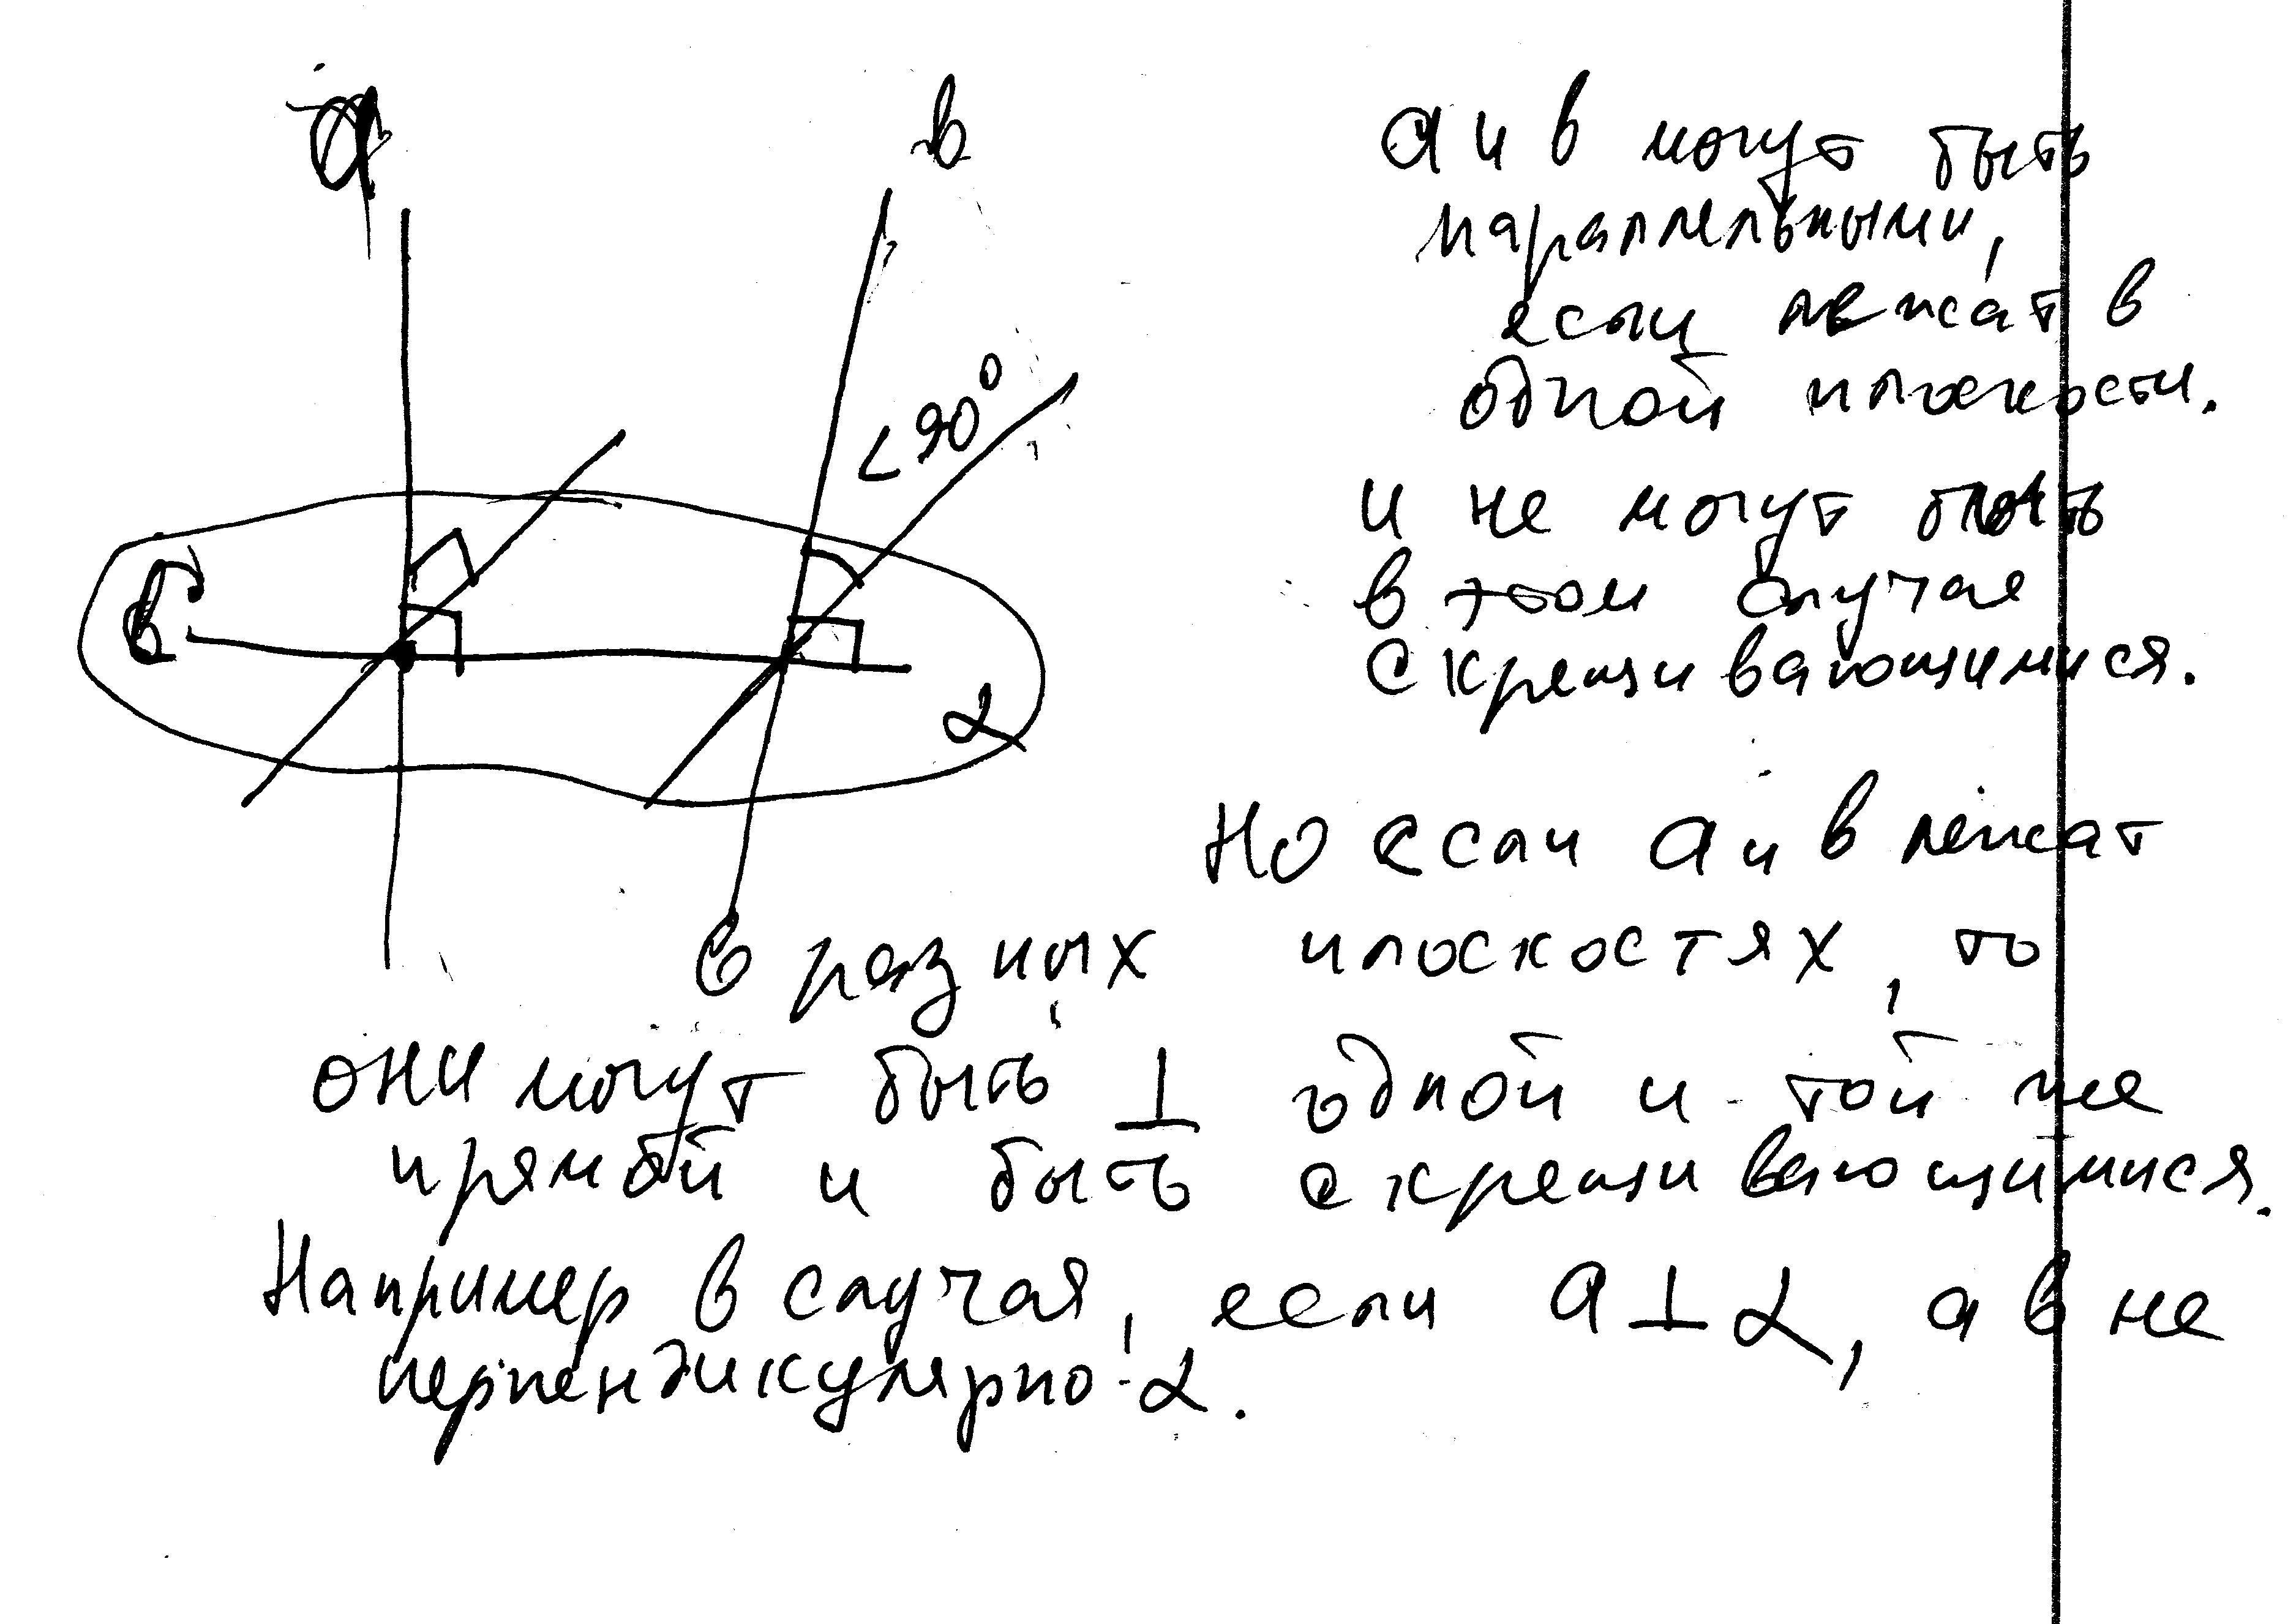 a b
а и в могут быть
параллельными,
если лежат в
одной плоскости.
<90°
и не могут быть
в этом случае
скрещивающимися.
α
Но если а и в лежат
в разных плоскостях, то
они могут быть ⊥ одной и той же
прямой и быть скрещивающимися.
Например в случая, если а ⊥ α, а в не
перпендикулярно α.